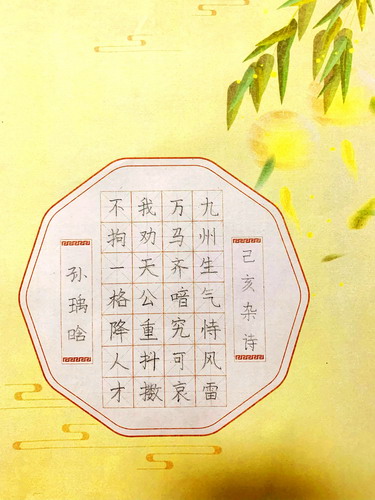 己亥杂诗
九州生气恃风雷
万马齐喑究可哀
我劝天公重抖擞
不拘一格降人才
孙瑀晗